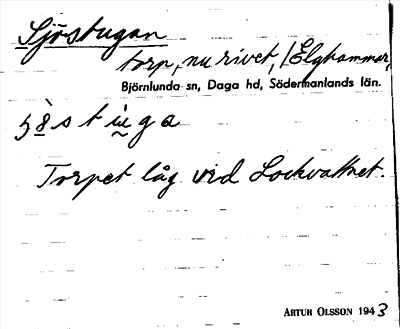 Sjöstugan
torp, nu rivet, /Elghammar,
Björnlunda sn, Daga hd, Södermanlands län.
Torpet låg vid Lockvattnet.
ARTUR OLSSON 1943